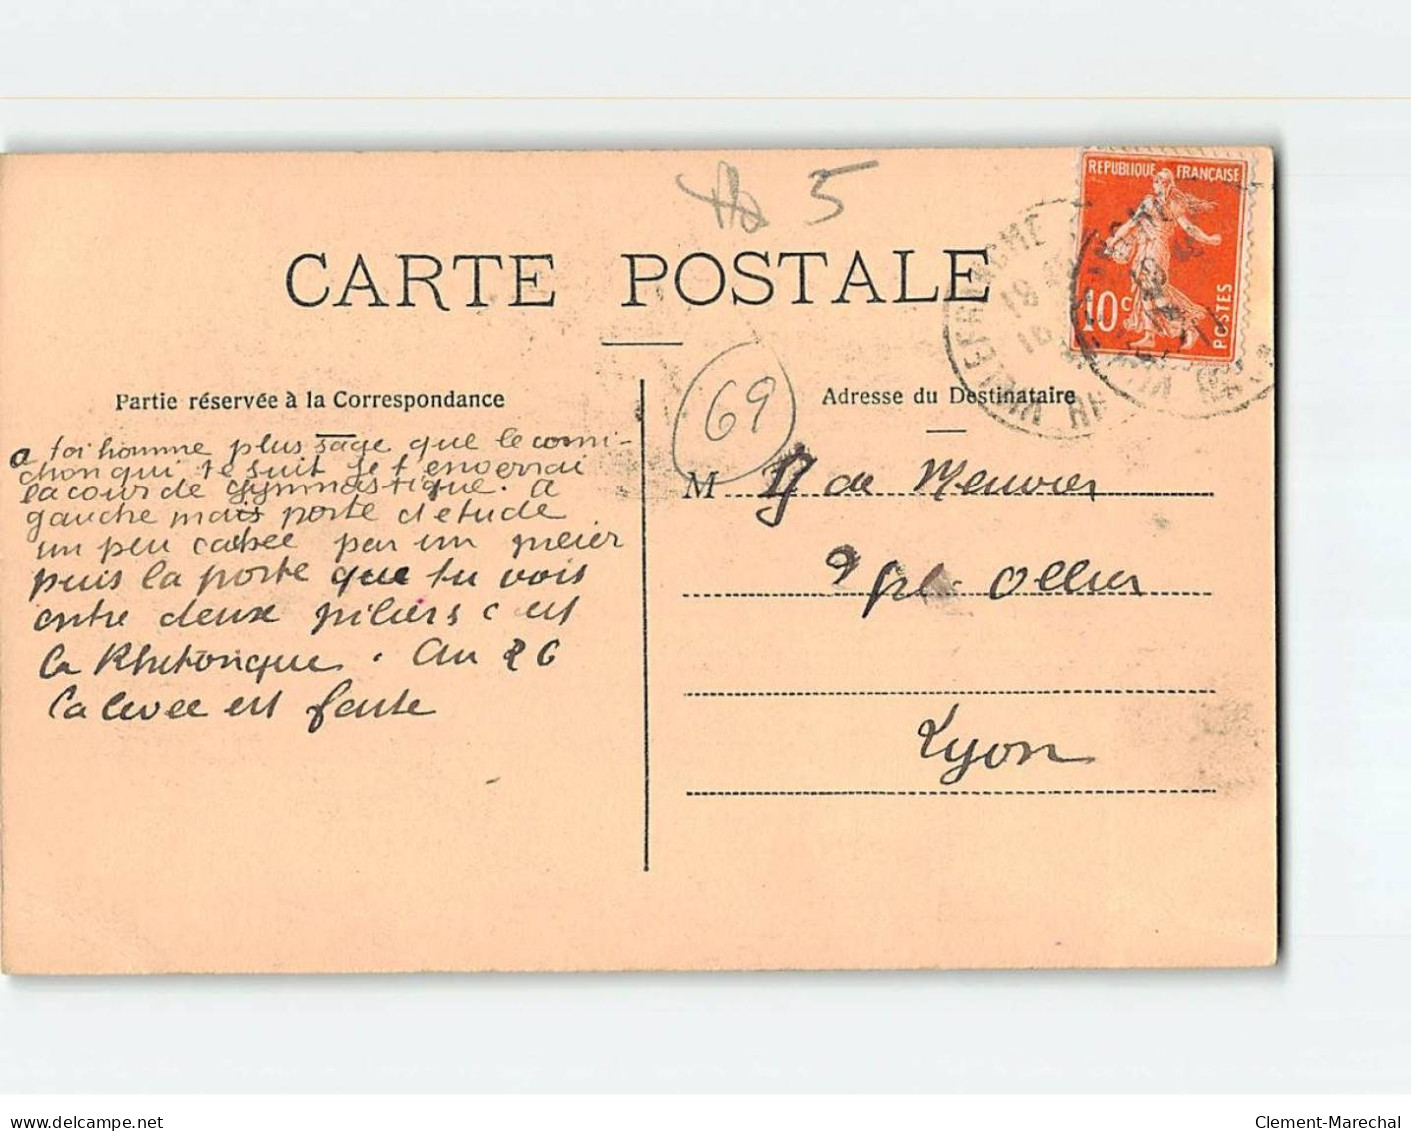 5
REPUBLIQUE FRANÇAISE
10c
POSTES
CARTE POSTALE
69
Partie réservée à la Correspondance
Adresse du Destinataire
a toi homme plus sage que le corni-
chon qui te suit je t'enverrai
la cour de gymnastique. a
gauche mais porte d'etude
un peu cachée par un
puis la porte que tu vois
entre deux piliers c est
la Rhétorique. Au 26
La levée est faite
M de Meuvier
9 pl. Ollier
Lyon
delcampe.net
Clement-Marechal